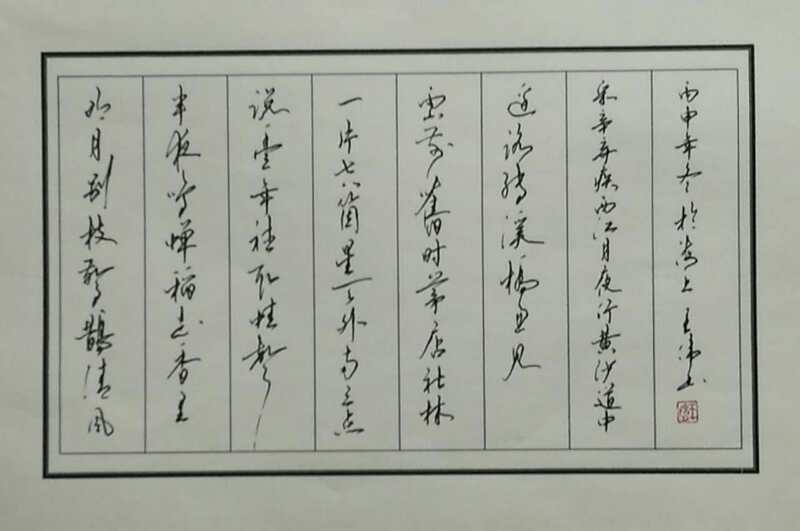 明月别枝驚鵲清风
半夜鸣蝉稻花香里
说豐年听取蛙聲
一片七八箇星天外两三点
雨山前舊时茅店社林
边路转溪橋忽见
宋辛弃疾西江月夜行黄沙道中
丙申年冬於海上 王伟书